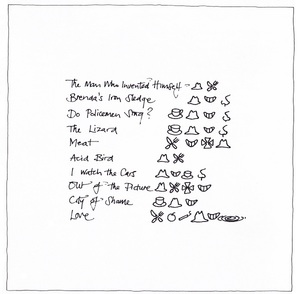 The Man Who Invented Himself -
Brenda's Iron Sledge
Do Policemen Sing?
The Lizard
Meat
Acid Bird
I Watch the Cars
Out of the Picture
City of Shame
Love